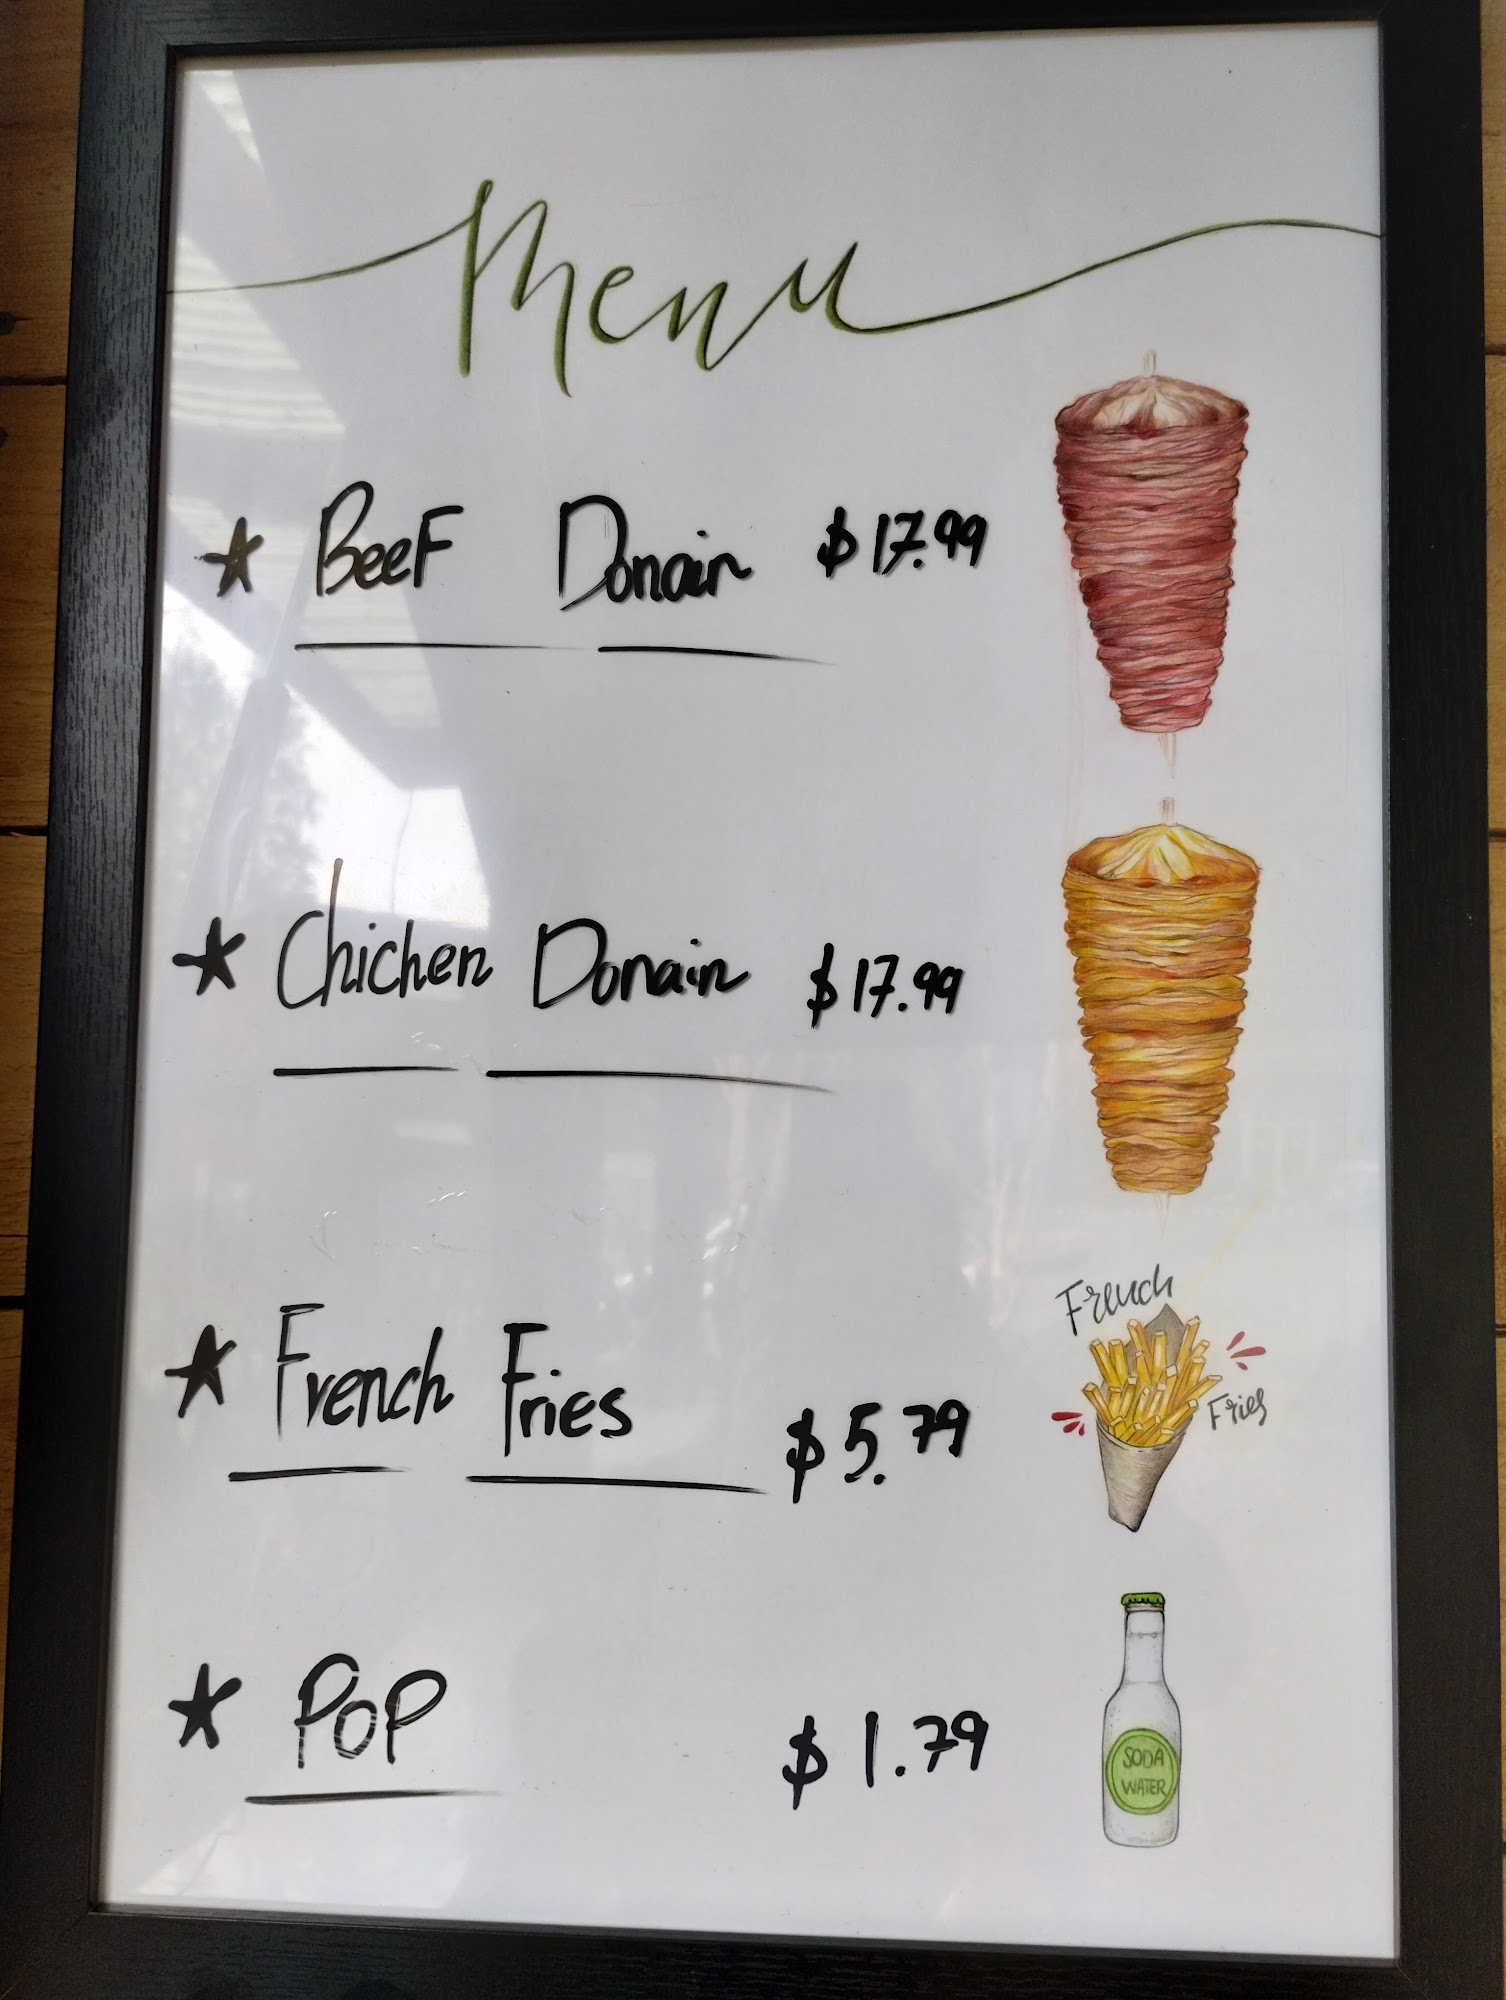 Menu
★ BeeF Donair $17.99
★ Chicken Donair $17.99
★ French Fries $5.79
French
Fries
★ POP $1.79
SODA
WATER